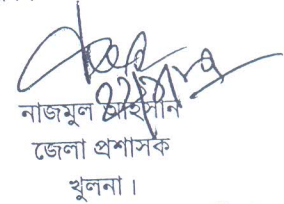 নাজমুল আহসান
জেলা প্রশাসক
খুলনা।